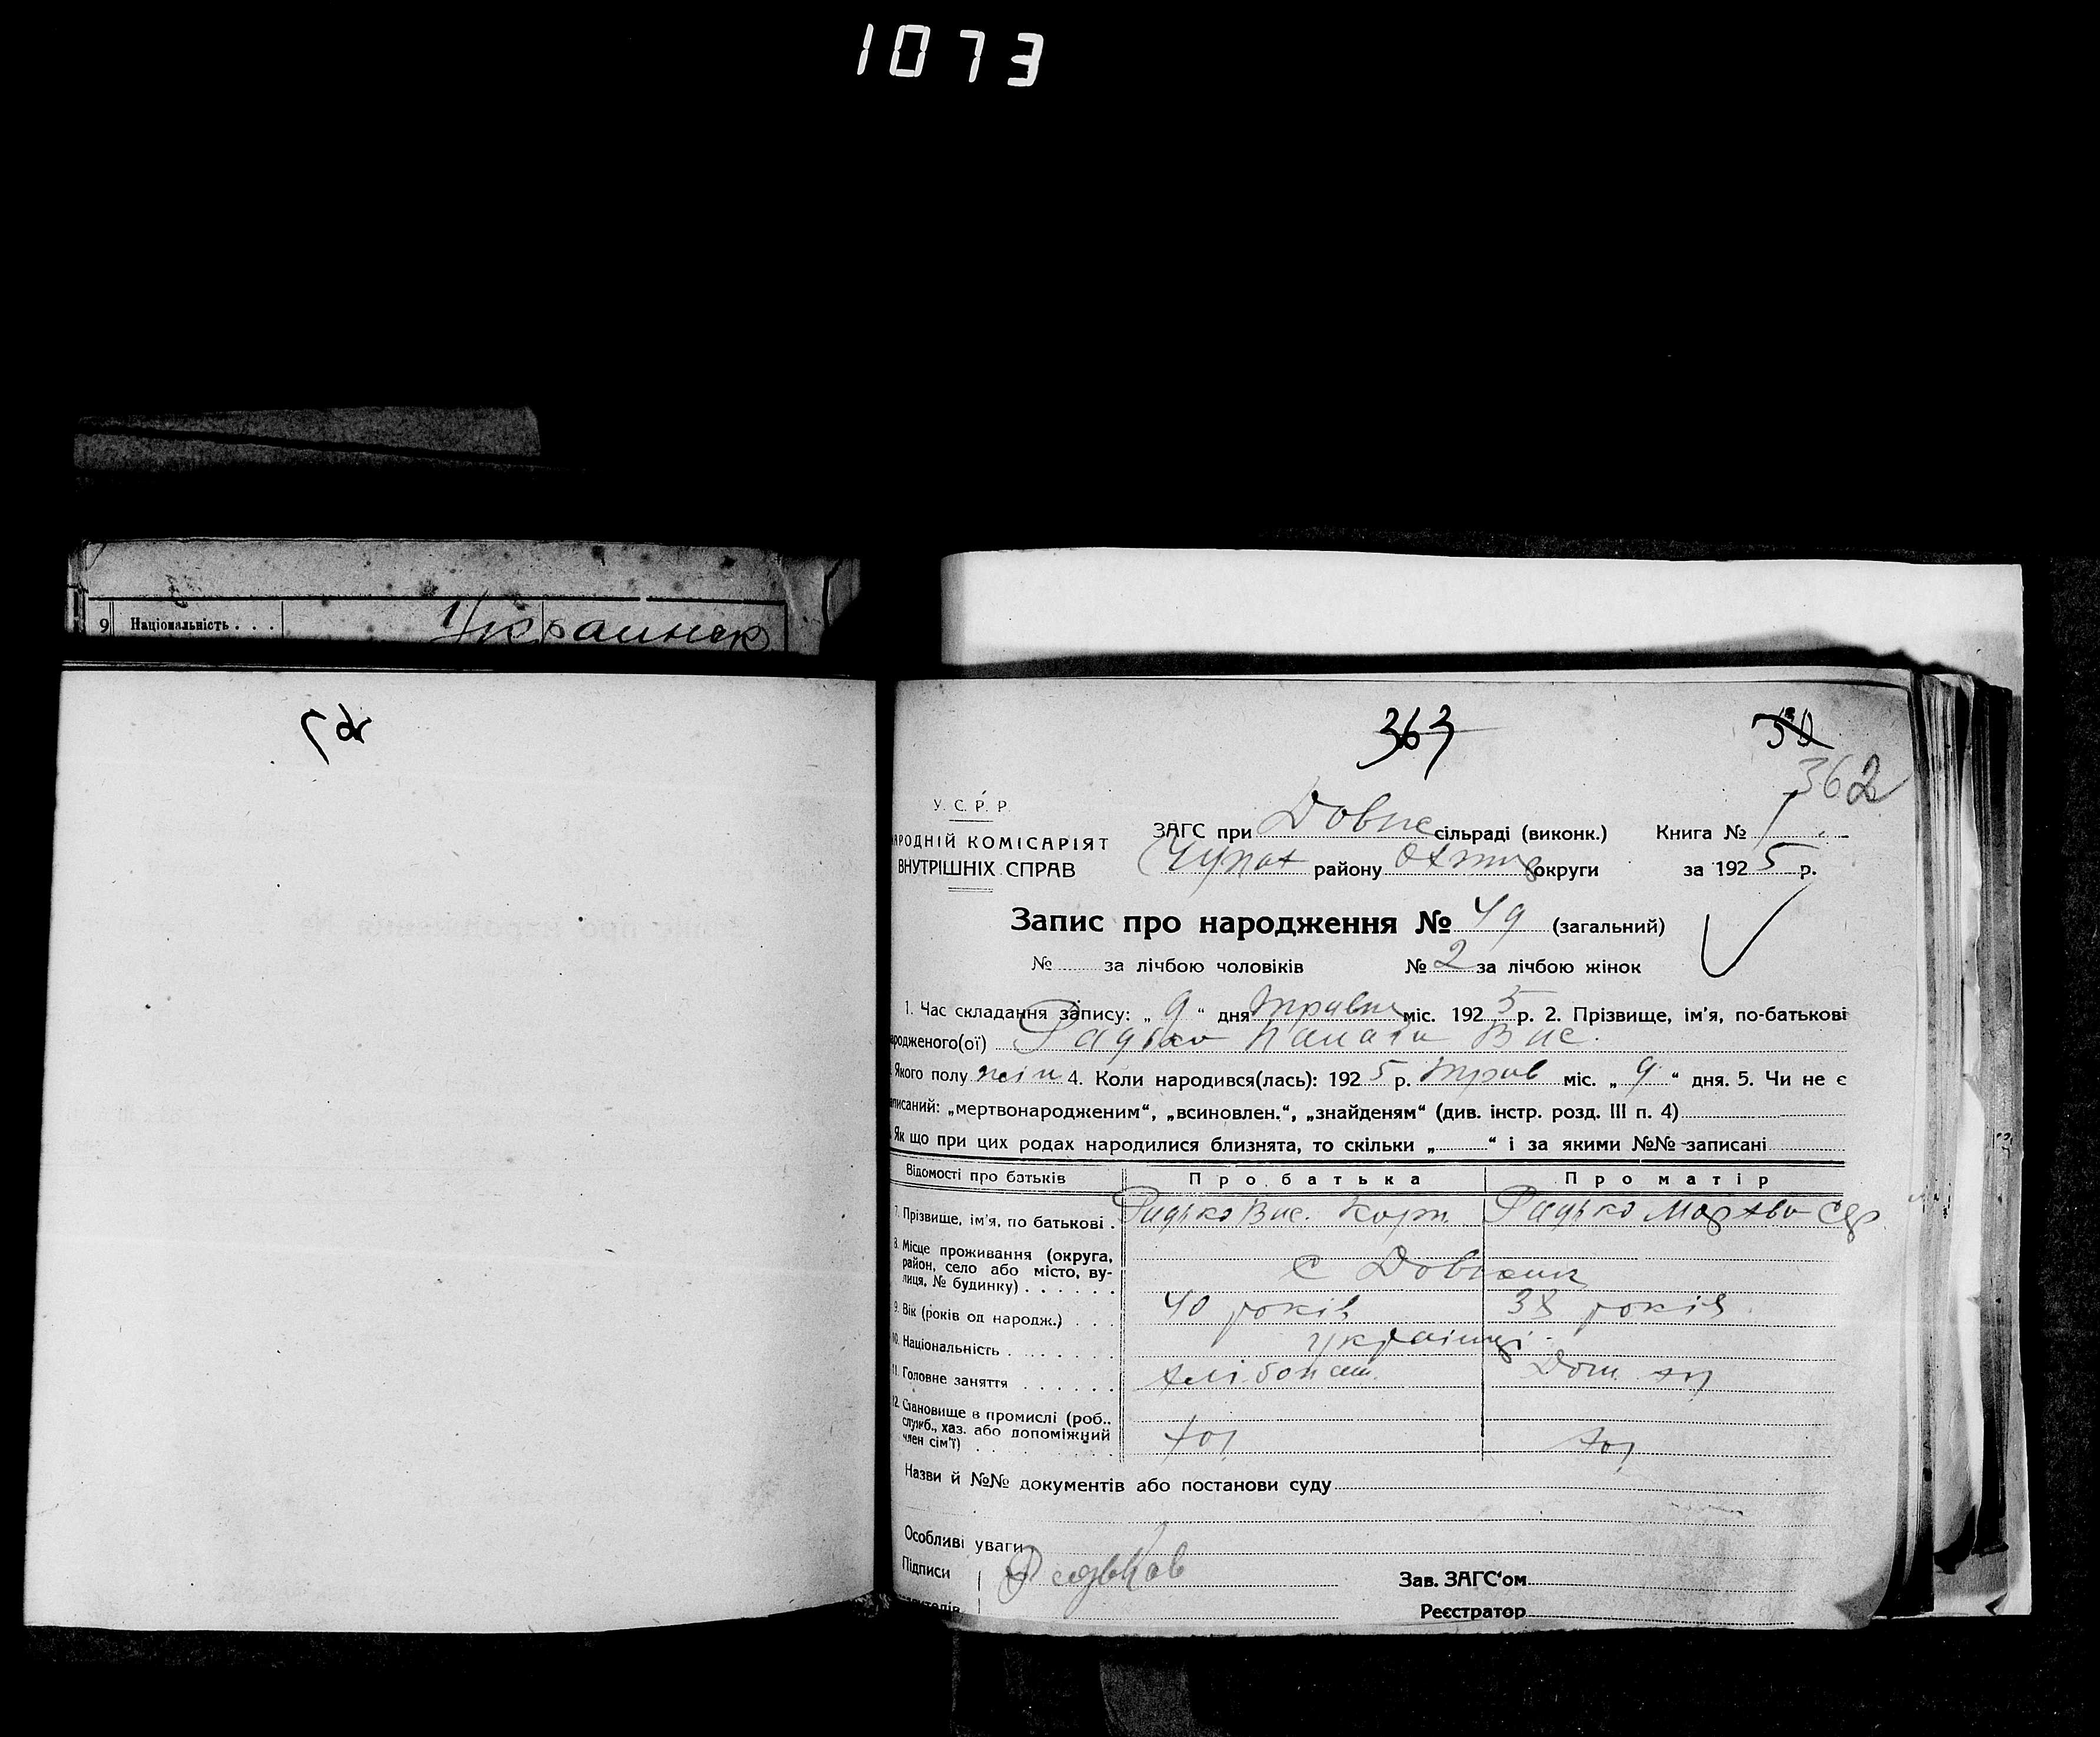 1073
9 Національність . . . Украинск
363
362
У. С. Р. Р.
АРОДНІЙ КОМІСАРІЯТ
ВНУТРІШНІХ СПРАВ
ЗАГС при Довж сільраді (виконк.) Книга № 1
Чупах району Охтир округи за 1925 р.
Запис про народження № 49 (загальний)
№ ... за лічбою чоловіків № 2 за лічбою жінок
1. Час складання запису: „ 9 “ дня травня міс. 1925 р. 2. Прізвище, ім’я, по-батькові
ародженого(ої) Радько Вас.
Якого полу жін 4. Коли народився(лась): 1925 р. трав міс. „ 9 “ дня. 5. Чи не є
аписаний: „мертвонародженим“, „всиновлен.“, „знайденям“ (див. інстр. розд. III п. 4)
Як що при цих родах народилися близнята, то скільки „......“ і за якими №№ записані
Відомості про батьків Про батька Про матір
7. Прізвище, ім’я, по батькові . Радько Вас. Корн. Радько Марфа
8. Місце проживання (округа,
район, село або місто, ву-
лиця, № будинку) . . . . . . с Довжик
9. Вік (років од народж.) . . . 40 років 38 років
10. Національність . . . . . . . українці
11. Головне заняття . . . . . . хлібопаш. Дом. хоз
12. Становище в промислі (роб.,
служб., хаз. або допоміжний
член сім’ї) . . . . . . . . хоз хоз
Назви й №№ документів або постанови суду
Особливі уваги
Підписи
Зав. ЗАГС‘ом
Реєстратор